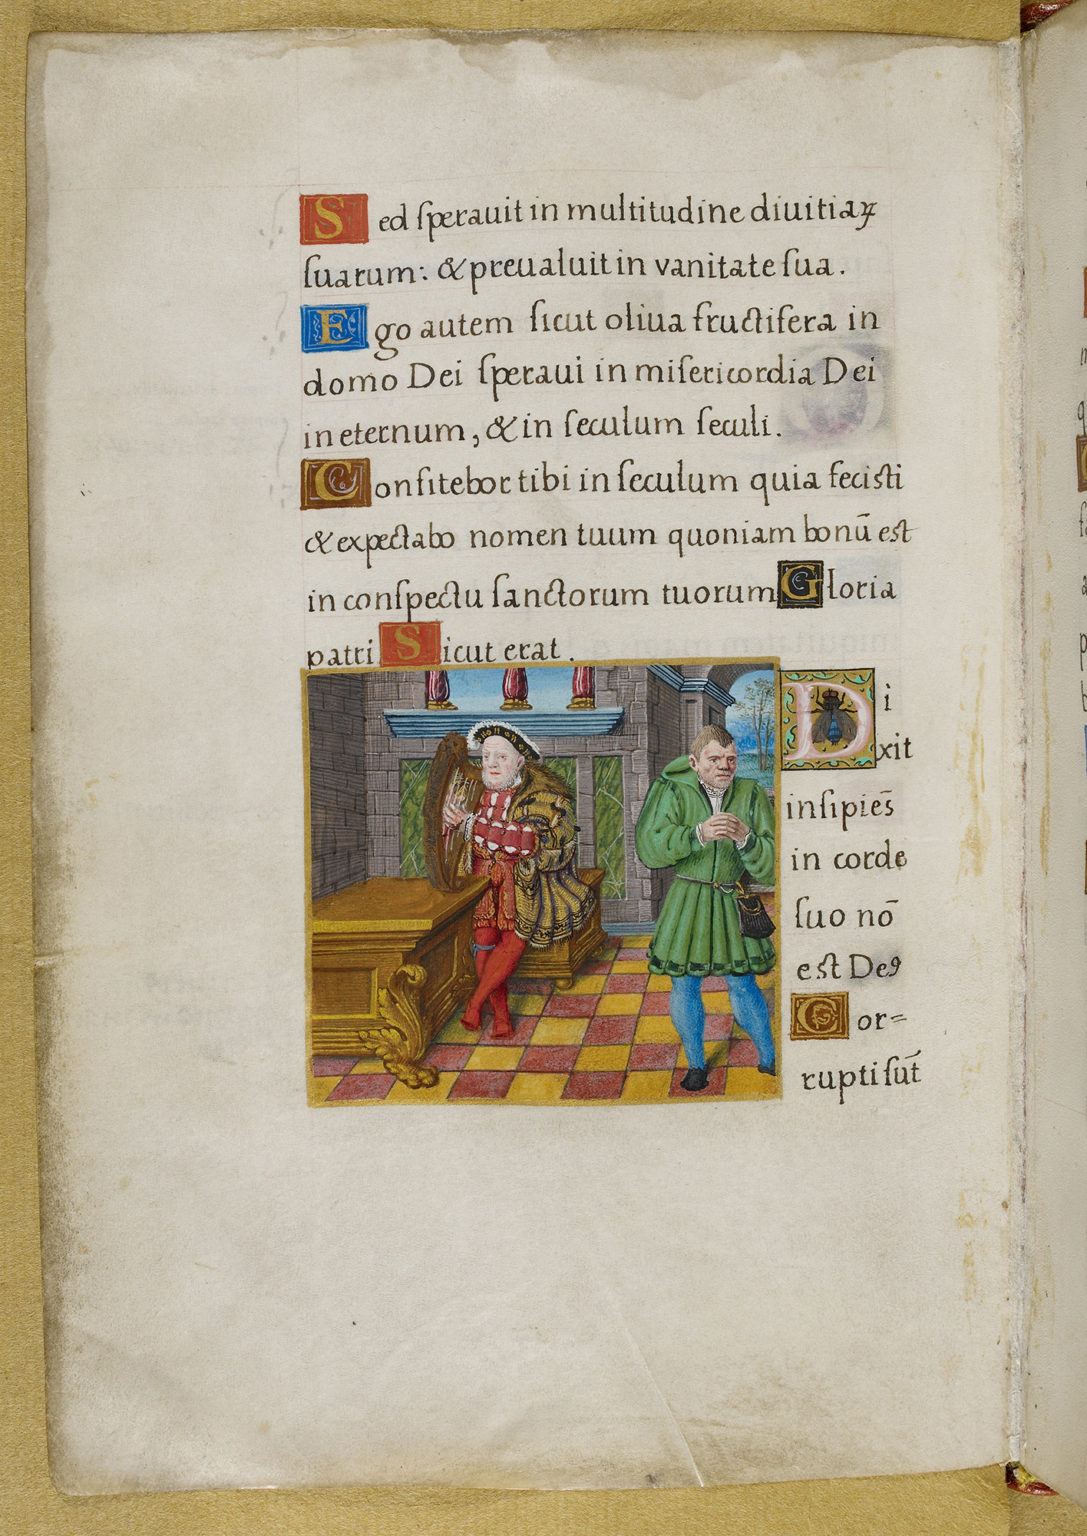 Sed ſperauit in multitudine diuitiaꝝ
ſuarum: & preualuit in vanitate ſua.
Ego autem ſicut oliua fructifera in
domo Dei ſperaui in miſericordia Dei
in eternum, & in ſeculum ſeculi.
Confitebor tibi in ſeculum quia feciſti
& expectabo nomen tuum quoniam bonū est
in conſpectu ſanctorum tuorum Gloria
patri Sicut erat.
Di
xit
inſipiēs
in corde
ſuo nō
eſt Deꝰ
Cor=
rupti ſūt